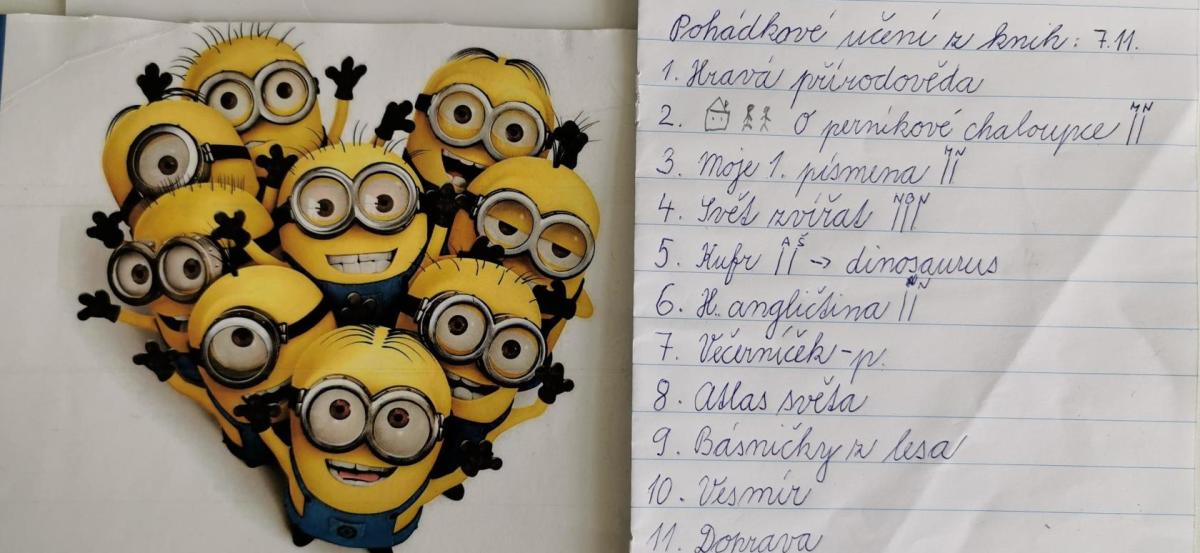 Pohádkové učení z knih: 7.11.
1. Hravá přírodověda
2. O perníkové chaloupce
3. Moje 1. písmena
4. Svět zvířat
5. Kufr A Š → dinosaurus
6. H. angličtina
7. Večerníček - p.
8. Atlas světa
9. Básničky z lesa
10. Vesmír
11. Doprava